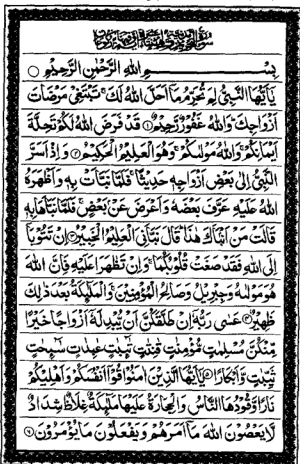 بِسْمِ اللهِ الرَّحْمٰنِ الرَّحِيْمِ
يٰۤاَيُّهَا النَّبِيُّ لِمَ تُحَرِّمُ مَاۤ اَحَلَّ اللهُ لَكَ تَبْتَغِيْ مَرْضَاتَ
اَزْوَاجِكَ وَاللهُ غَفُوْرٌ رَّحِيْمٌ ۝١ قَدْ فَرَضَ اللهُ لَكُمْ تَحِلَّةَ
اَيْمَانِكُمْ وَاللهُ مَوْلٰىكُمْ وَهُوَ الْعَلِيْمُ الْحَكِيْمُ ۝٢ وَاِذْ اَسَرَّ
النَّبِيُّ اِلٰى بَعْضِ اَزْوَاجِهٖ حَدِيْثًا فَلَمَّا نَبَّاَتْ بِهٖ وَاَظْهَرَهُ
اللهُ عَلَيْهِ عَرَّفَ بَعْضَهٗ وَاَعْرَضَ عَنْ بَعْضٍ فَلَمَّا نَبَّاَهَا بِهٖ
قَالَتْ مَنْ اَنْۢبَاَكَ هٰذَا قَالَ نَبَّاَنِيَ الْعَلِيْمُ الْخَبِيْرُ ۝٣ اِنْ تَتُوْبَاۤ
اِلَى اللهِ فَقَدْ صَغَتْ قُلُوْبُكُمَا وَاِنْ تَظٰهَرَا عَلَيْهِ فَاِنَّ اللهَ
هُوَ مَوْلٰىهُ وَجِبْرِيْلُ وَصَالِحُ الْمُؤْمِنِيْنَ وَالْمَلٰٓئِكَةُ بَعْدَ ذٰلِكَ
ظَهِيْرٌ ۝٤ عَسٰى رَبُّهٗۤ اِنْ طَلَّقَكُنَّ اَنْ يُّبْدِلَهٗۤ اَزْوَاجًا خَيْرًا
مِّنْكُنَّ مُسْلِمٰتٍ مُّؤْمِنٰتٍ قٰنِتٰتٍ تٰٓئِبٰتٍ عٰبِدٰتٍ سٰٓئِحٰتٍ
ثَيِّبٰتٍ وَّاَبْكَارًا ۝٥ يٰۤاَيُّهَا الَّذِيْنَ اٰمَنُوْا قُوْۤا اَنْفُسَكُمْ وَاَهْلِيْكُمْ
نَارًا وَّقُوْدُهَا النَّاسُ وَالْحِجَارَةُ عَلَيْهَا مَلٰٓئِكَةٌ غِلَاظٌ شِدَادٌ
لَّا يَعْصُوْنَ اللهَ مَاۤ اَمَرَهُمْ وَيَفْعَلُوْنَ مَا يُؤْمَرُوْنَ ۝٦